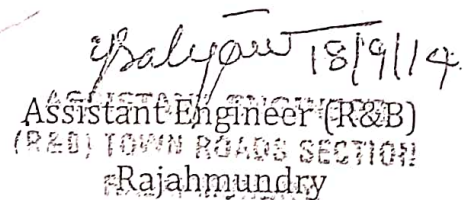 18/9/14
Assistant Engineer (R&B)
ASSISTANT ENGINEER
(R&B) TOWN ROADS SECTION
Rajahmundry